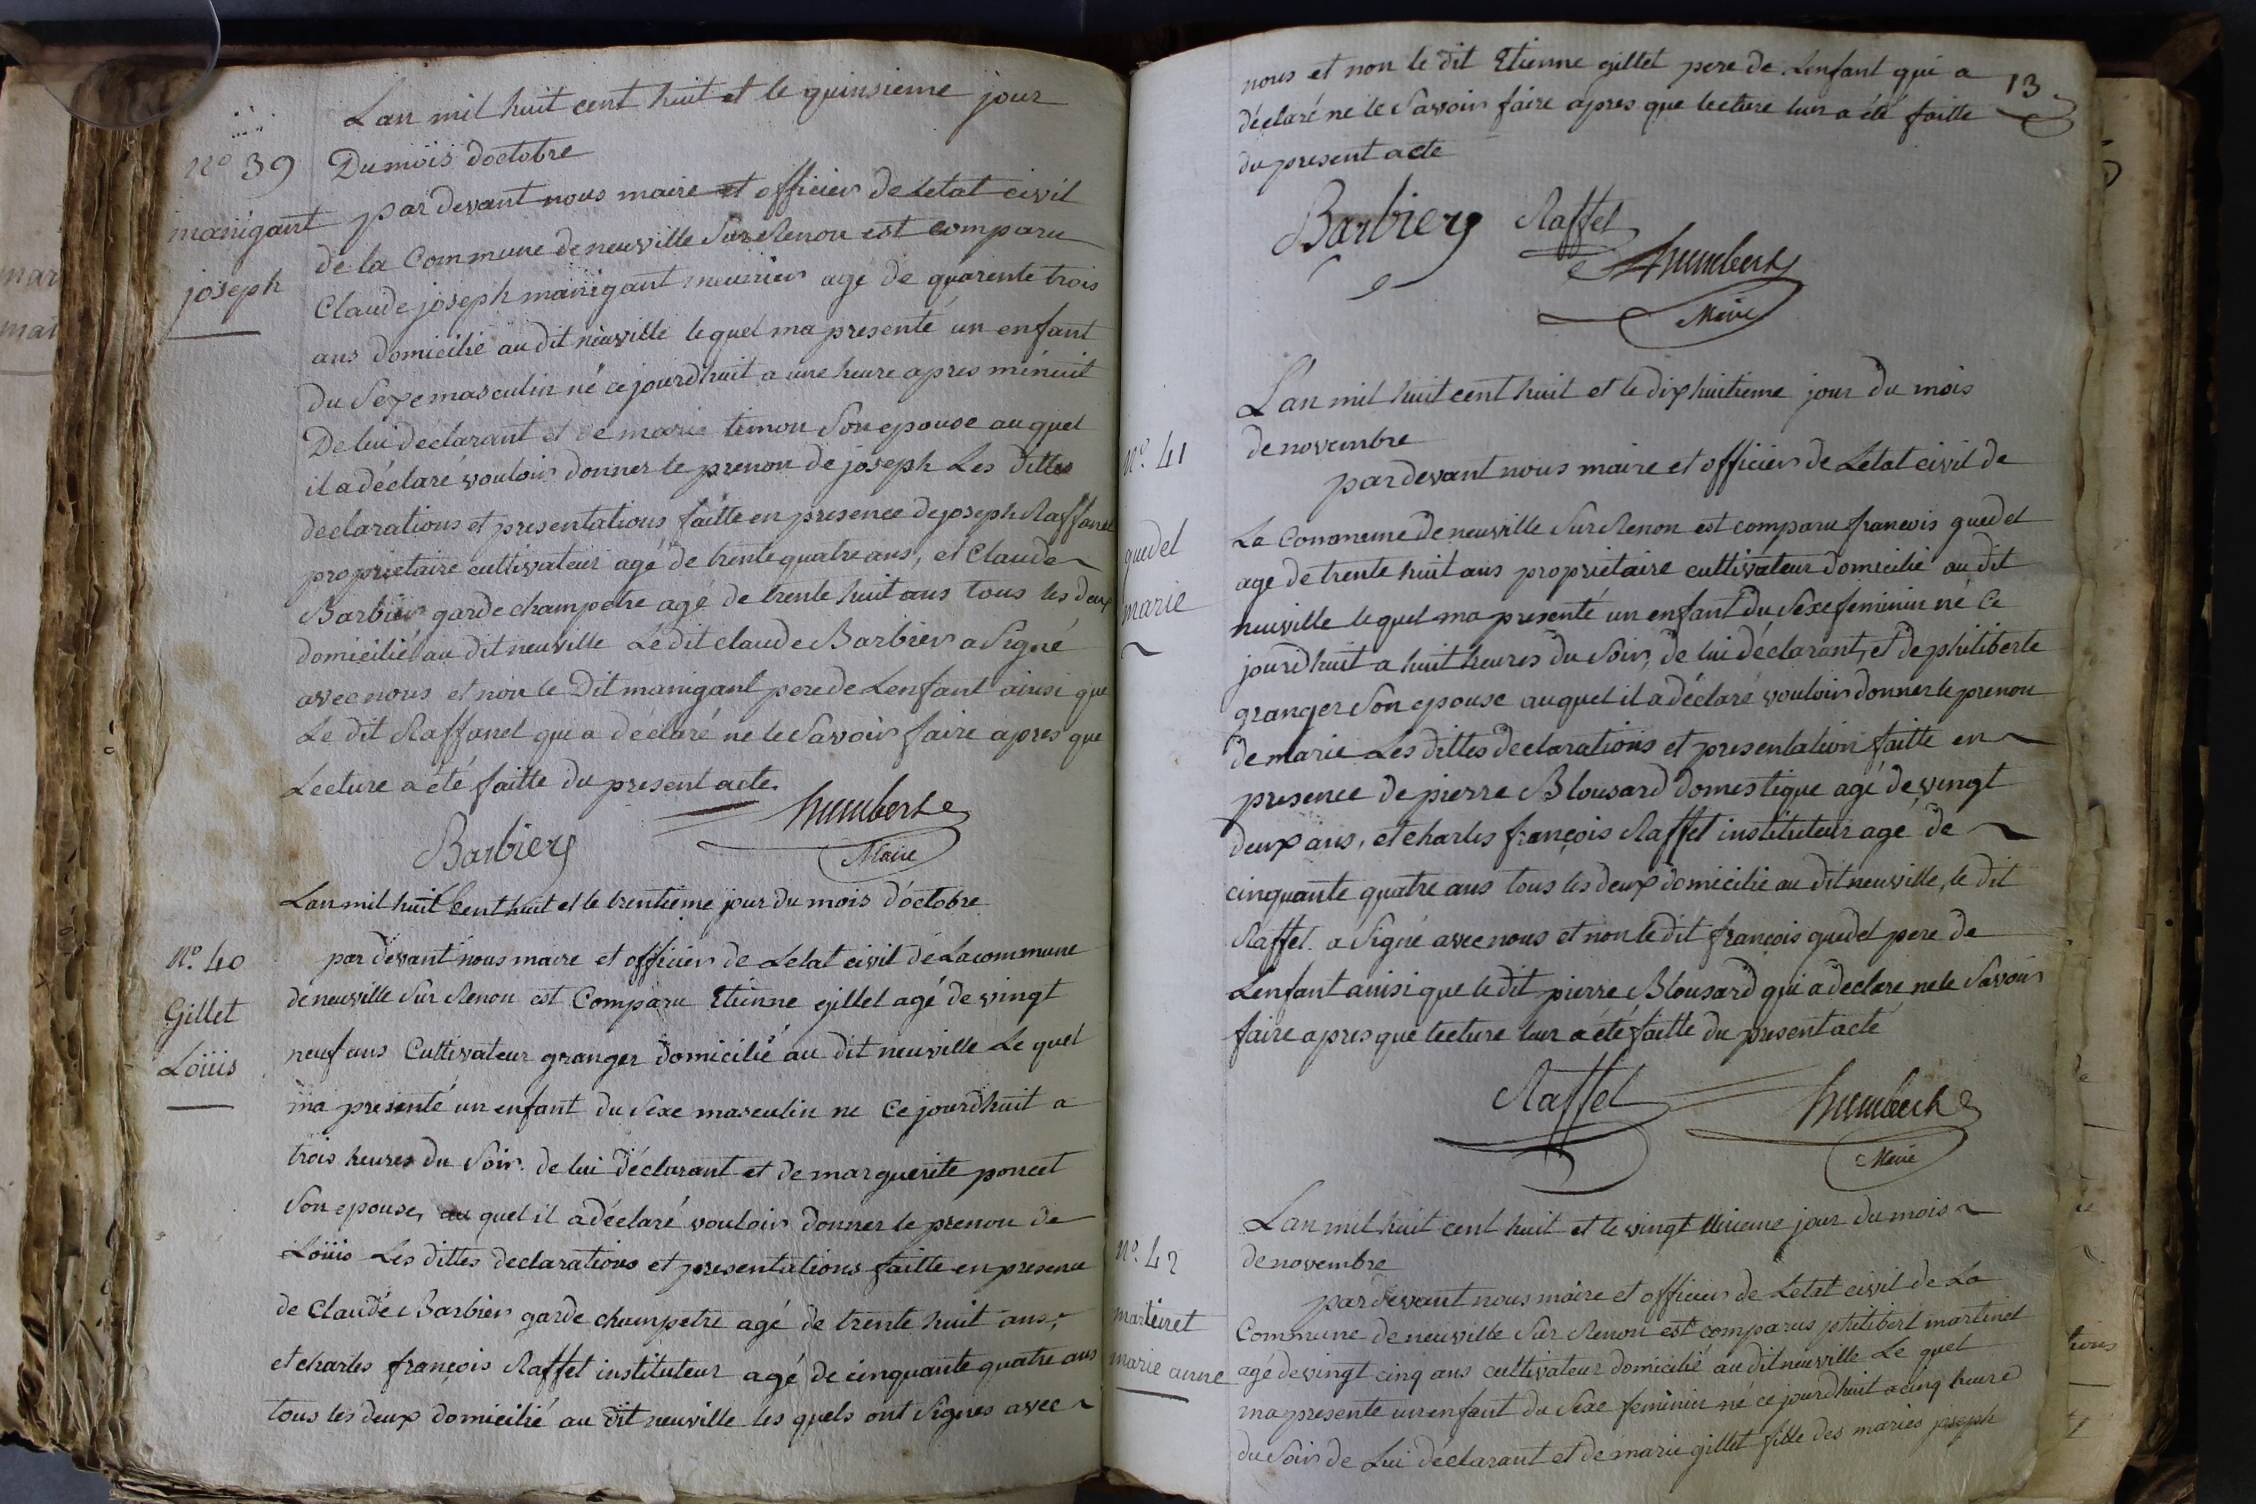 Lan mil huit cent huit et le quinsieme jour
Du mois doctobre
No 39
manigant
joseph
par devant nous maire et officier de Letat civil
de la Commune de neuville Sur Renon est comparu
Claude joseph manigant meunier agé de quarente trois
ans domicilié au dit neuville le quel ma presenté un enfant
du Sexe masculin né ce jourdhuit a une heure apres minuit
De lui déclarant et de marie timon Son epouse au quel
il a déclaré vouloir donner le prenon de joseph Les dittes
declarations et presentations faitte en presence de joseph Raffanel
proprietaire cultivateur agé de trente quatre ans, et Claude
Barbier garde champetre agé de trente huit ans tous les deux
domicilié au dit neuville Le dit claude Barbier a Signé
avec nous et non le Dit manigant pere de Lenfant ainsi que
Le dit Raffanel qui a déclaré ne le Savoir faire apres que
Lecture a été faitte du present acte.
Barbier humbert
Maire
Lan mil huit Cent huit et le trentieme jour du mois d'octobre
No. 40
Gillet
Loüis
par devant nous maire et officier de Letat civil de La commune
de neuville Sur Renon est Comparu Etienne gillet agé de vingt
neuf ans Cultivateur granger domicilié au dit neuville Le quel
ma presenté un enfant du Sexe masculin ne Ce jourdhuit a
trois heures du Soir. de lui déclarant et de marguerite poncet
Son epouse, au quel il a déclaré vouloir donner le prenon de
Loüis Les dittes declarations et presentations faitte en presence
de Claude Barbier garde champetre agé de trente huit ans,
et charles françois Raffet instituteur agé de cinquante quatre ans
tous les deux domicilié au dit neuville les quels ont Signés avec
13
nous et non le dit Etienne gillet pere de Lenfant qui a
déclaré ne le Savoir faire apres que lecture lui a été faitte
du present acte
Barbier Raffet
humbert
Maire
Lan mil huit cent huit et le dix huitieme jour du mois
de novembre
No. 41
quedel
marie
par devant nous maire et officier de Letat civil de
La Commune de neuville Sur Renon est comparu francois quedel
age de trente huit ans proprietaire cultivateur domicilié au dit
neuville le quel ma presenté un enfant du Sexe feminin né Ce
jourdhuit a huit heures du Soir, de lui déclarant, et de philiberte
granger Son epouse au quel il a déclaré vouloir donner le prenon
de marie Les dittes declarations et presentation faitte en
presence de pierre Blousard domestique agé de vingt
deux ans, et charles françois Raffet instituteur agé de
cinquante quatre ans tous les deux domicilié au dit neuville, le dit
Raffet. a Signé avec nous et non le dit françois quedel pere de
Lenfant ainsi que le dit pierre Blousard qui a declaré ne le Savoir
faire apres que lecture lur a été faitte du present acte
Raffet humbert
Maire
Lan mil huit cent huit et le vingt unieme jour du mois
de novembre
No. 42
martinet
marie anne
par devant nous maire et officier de Letat civil de La
Commune de neuville Sur Renon est comparus philibert martinet
agé de vingt cinq ans cultivateur domicilié au dit neuville Le quel
ma presente un enfant du Sexe feminin né ce jourdhuit a cinq heure
du Soir de Lui déclarant et de marie gillet fille des mariés joseph